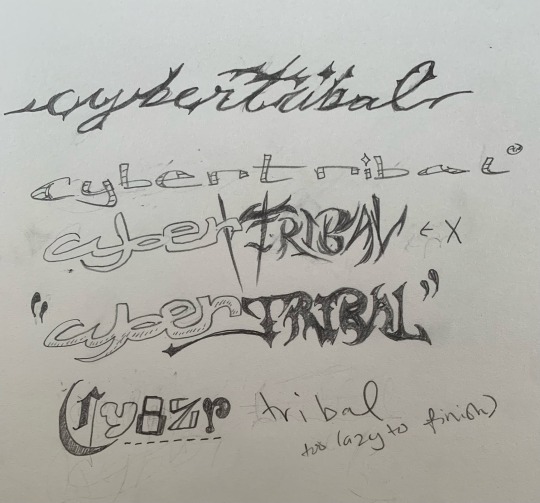 cybertribal
cybertribal™
cyberTRIBAL ← X
"cyberTRIBAL"
Cy8zr tribal
too lazy to finish)